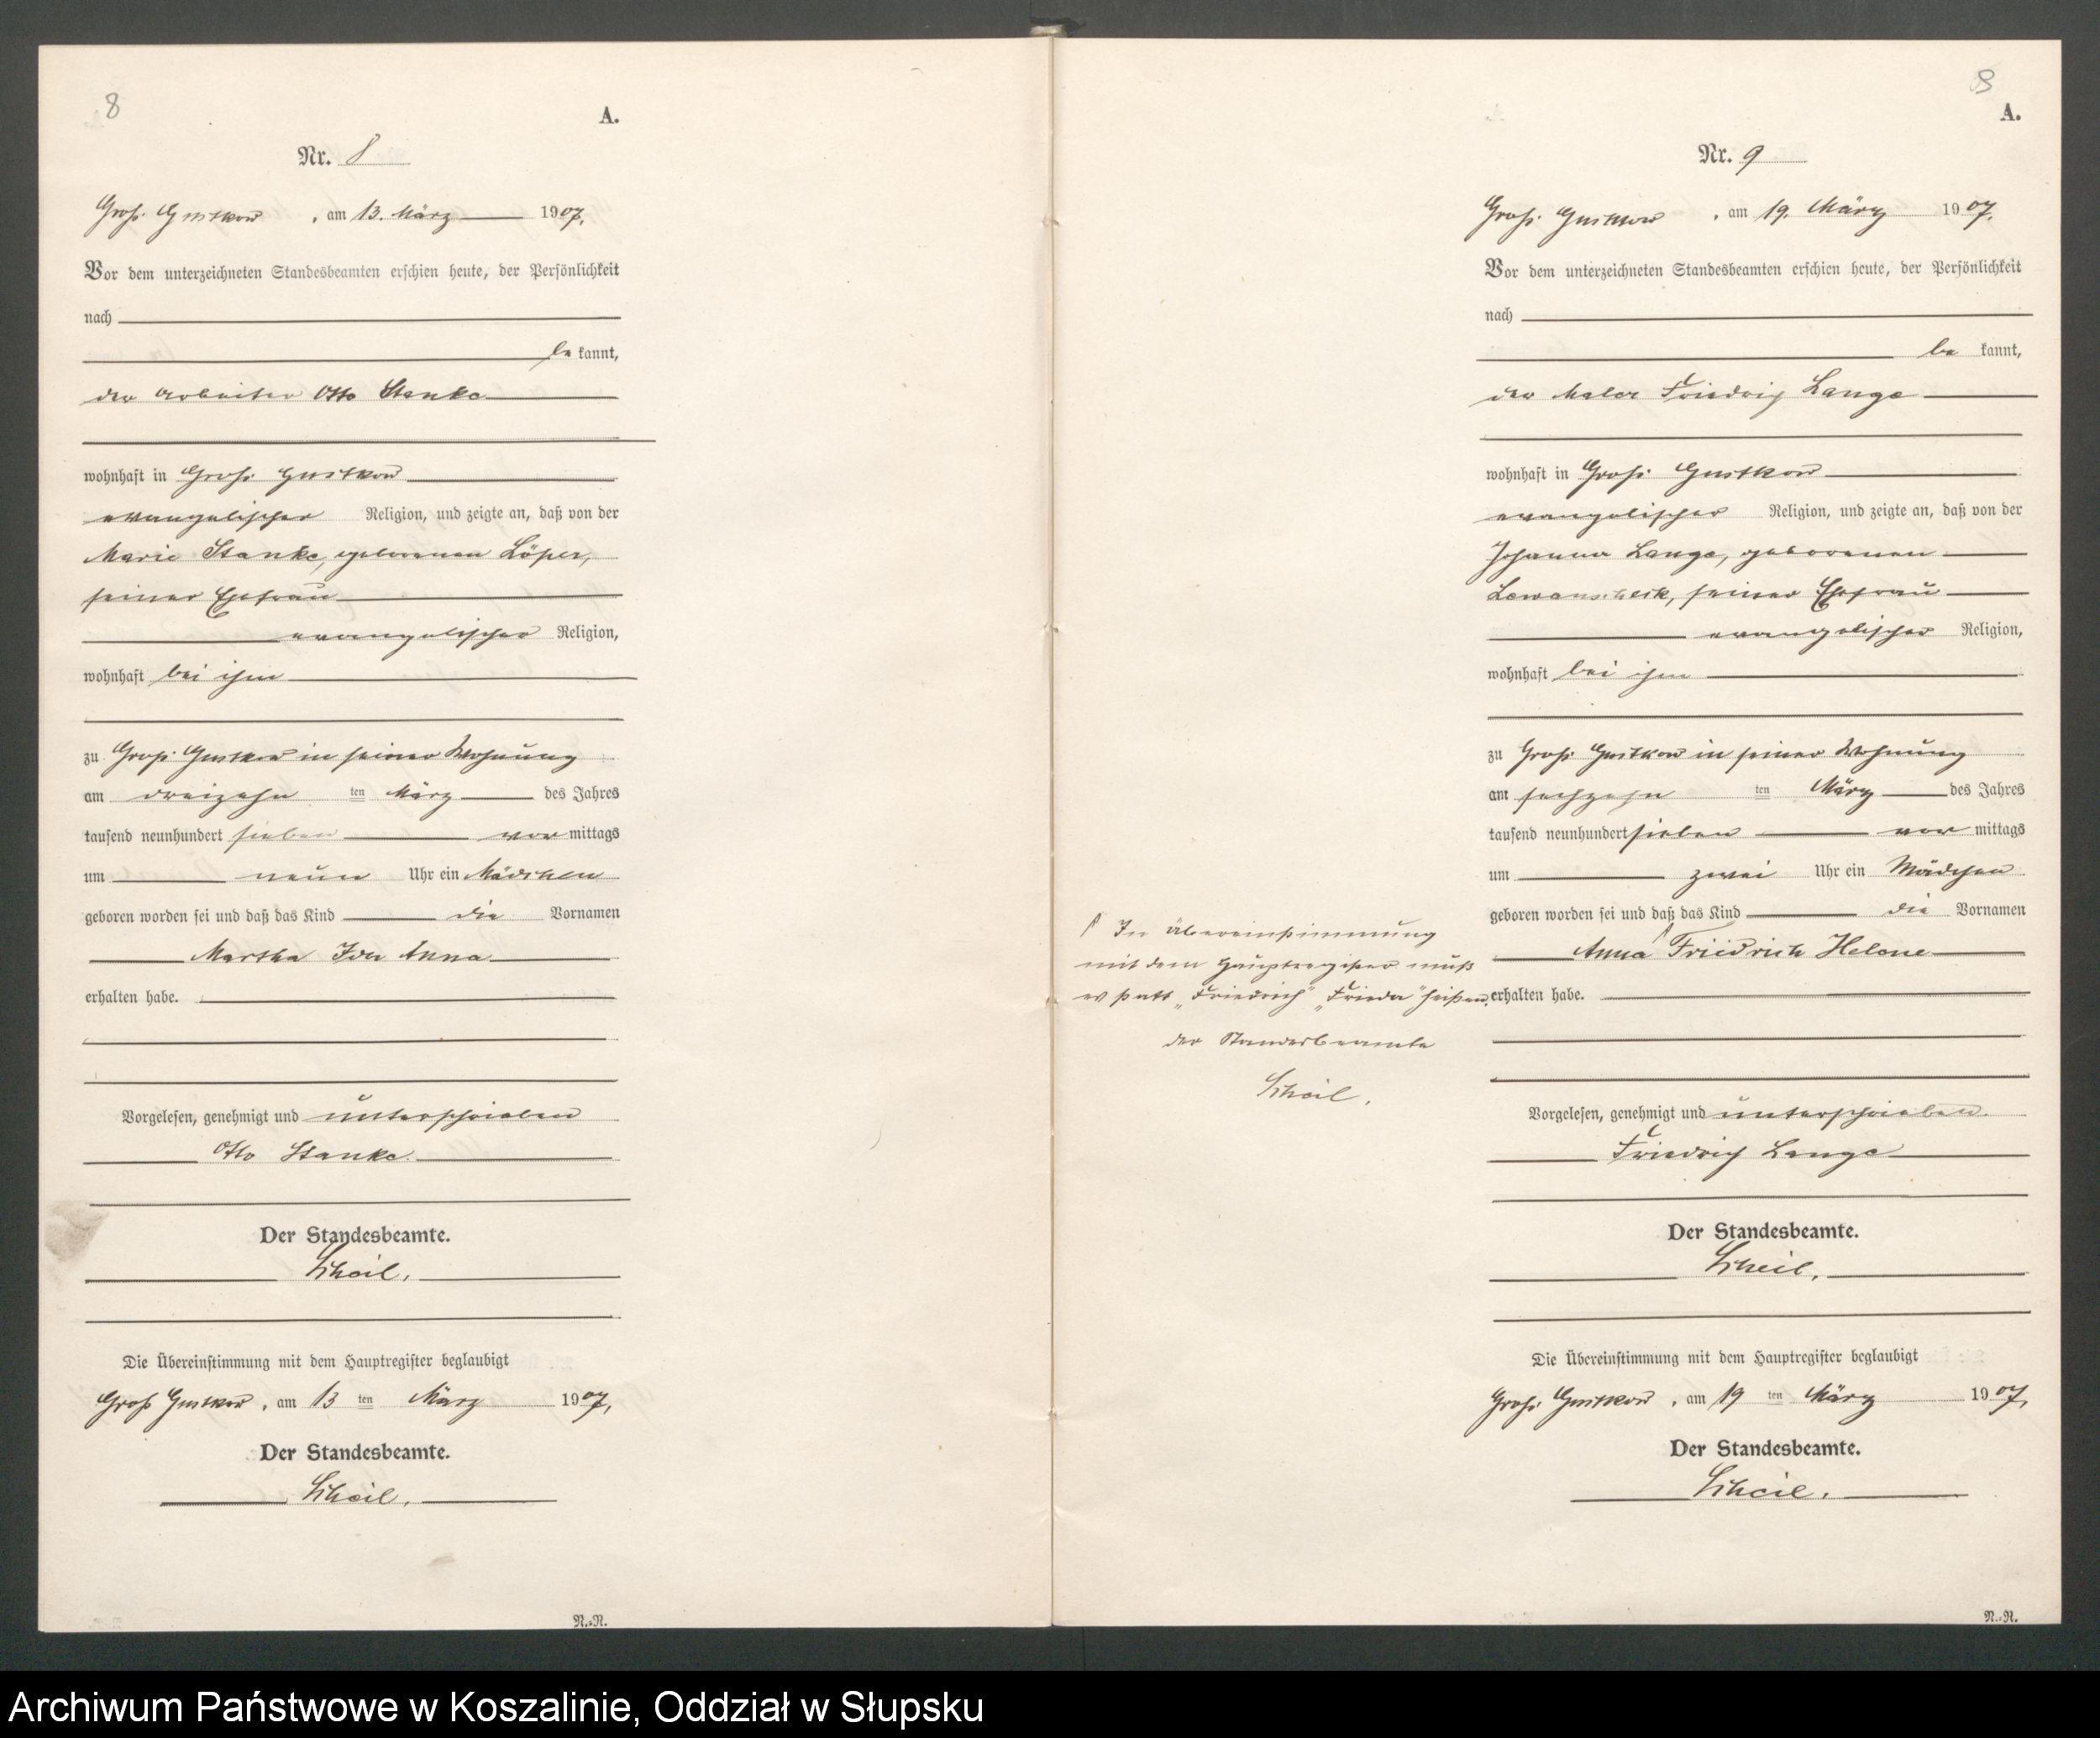 8
A.
Nr. 8
Groß Gustkow, am 13. März 1907.
Vor dem unterzeichneten Standesbeamten erschien heute, der Persönlichkeit
nach
be kannt,
der Arbeiter Otto Stanke
wohnhaft in Groß Gustkow
evangelischer Religion, und zeigte an, daß von der
Marie Stanke, geborenen Löper,
seiner Ehefrau
evangelischer Religion,
wohnhaft bei ihm
zu Groß Gustkow in seiner Wohnung
am dreizehn ten März des Jahres
tausend neunhundert sieben vor mittags
um neun Uhr ein Mädchen
geboren worden sei und daß das Kind die Vornamen
Martha Ida Anna
erhalten habe.
Vorgelesen, genehmigt und unterschrieben
Otto Stanke.
Der Standesbeamte.
Scheil.
Die Übereinstimmung mit dem Hauptregister beglaubigt
Groß Gustkow, am 13 ten März 1907,
Der Standesbeamte.
Scheil.
N.=R.
A.
Nr. 9
Groß Gustkow, am 19. März 1907.
Vor dem unterzeichneten Standesbeamten erschien heute, der Persönlichkeit
nach
be kannt,
der Maler Friedrich Lange
wohnhaft in Groß Gustkow
evangelischer Religion, und zeigte an, daß von der
Johanna Lange, geborenen
seiner Ehefrau
evangelischer Religion,
wohnhaft bei ihm
zu Groß Gustkow in seiner Wohnung
am sechzehn ten März des Jahres
tausend neunhundert sieben vor mittags
um zwei Uhr ein Mädchen
geboren worden sei und daß das Kind die Vornamen
Anna Friedrich Helene
erhalten habe.
In Übereinstimmung
mit dem Hauptregister muß
es statt „Friedrich" „Frieda" heißen.
der Standesbeamte
Scheil.
Vorgelesen, genehmigt und unterschrieben.
Friedrich Lange
Der Standesbeamte.
Scheil.
Die Übereinstimmung mit dem Hauptregister beglaubigt
Groß Gustkow, am 19 ten März 1907,
Der Standesbeamte.
Scheil.
N.=R.
Archiwum Państwowe w Koszalinie, Oddział w Słupsku